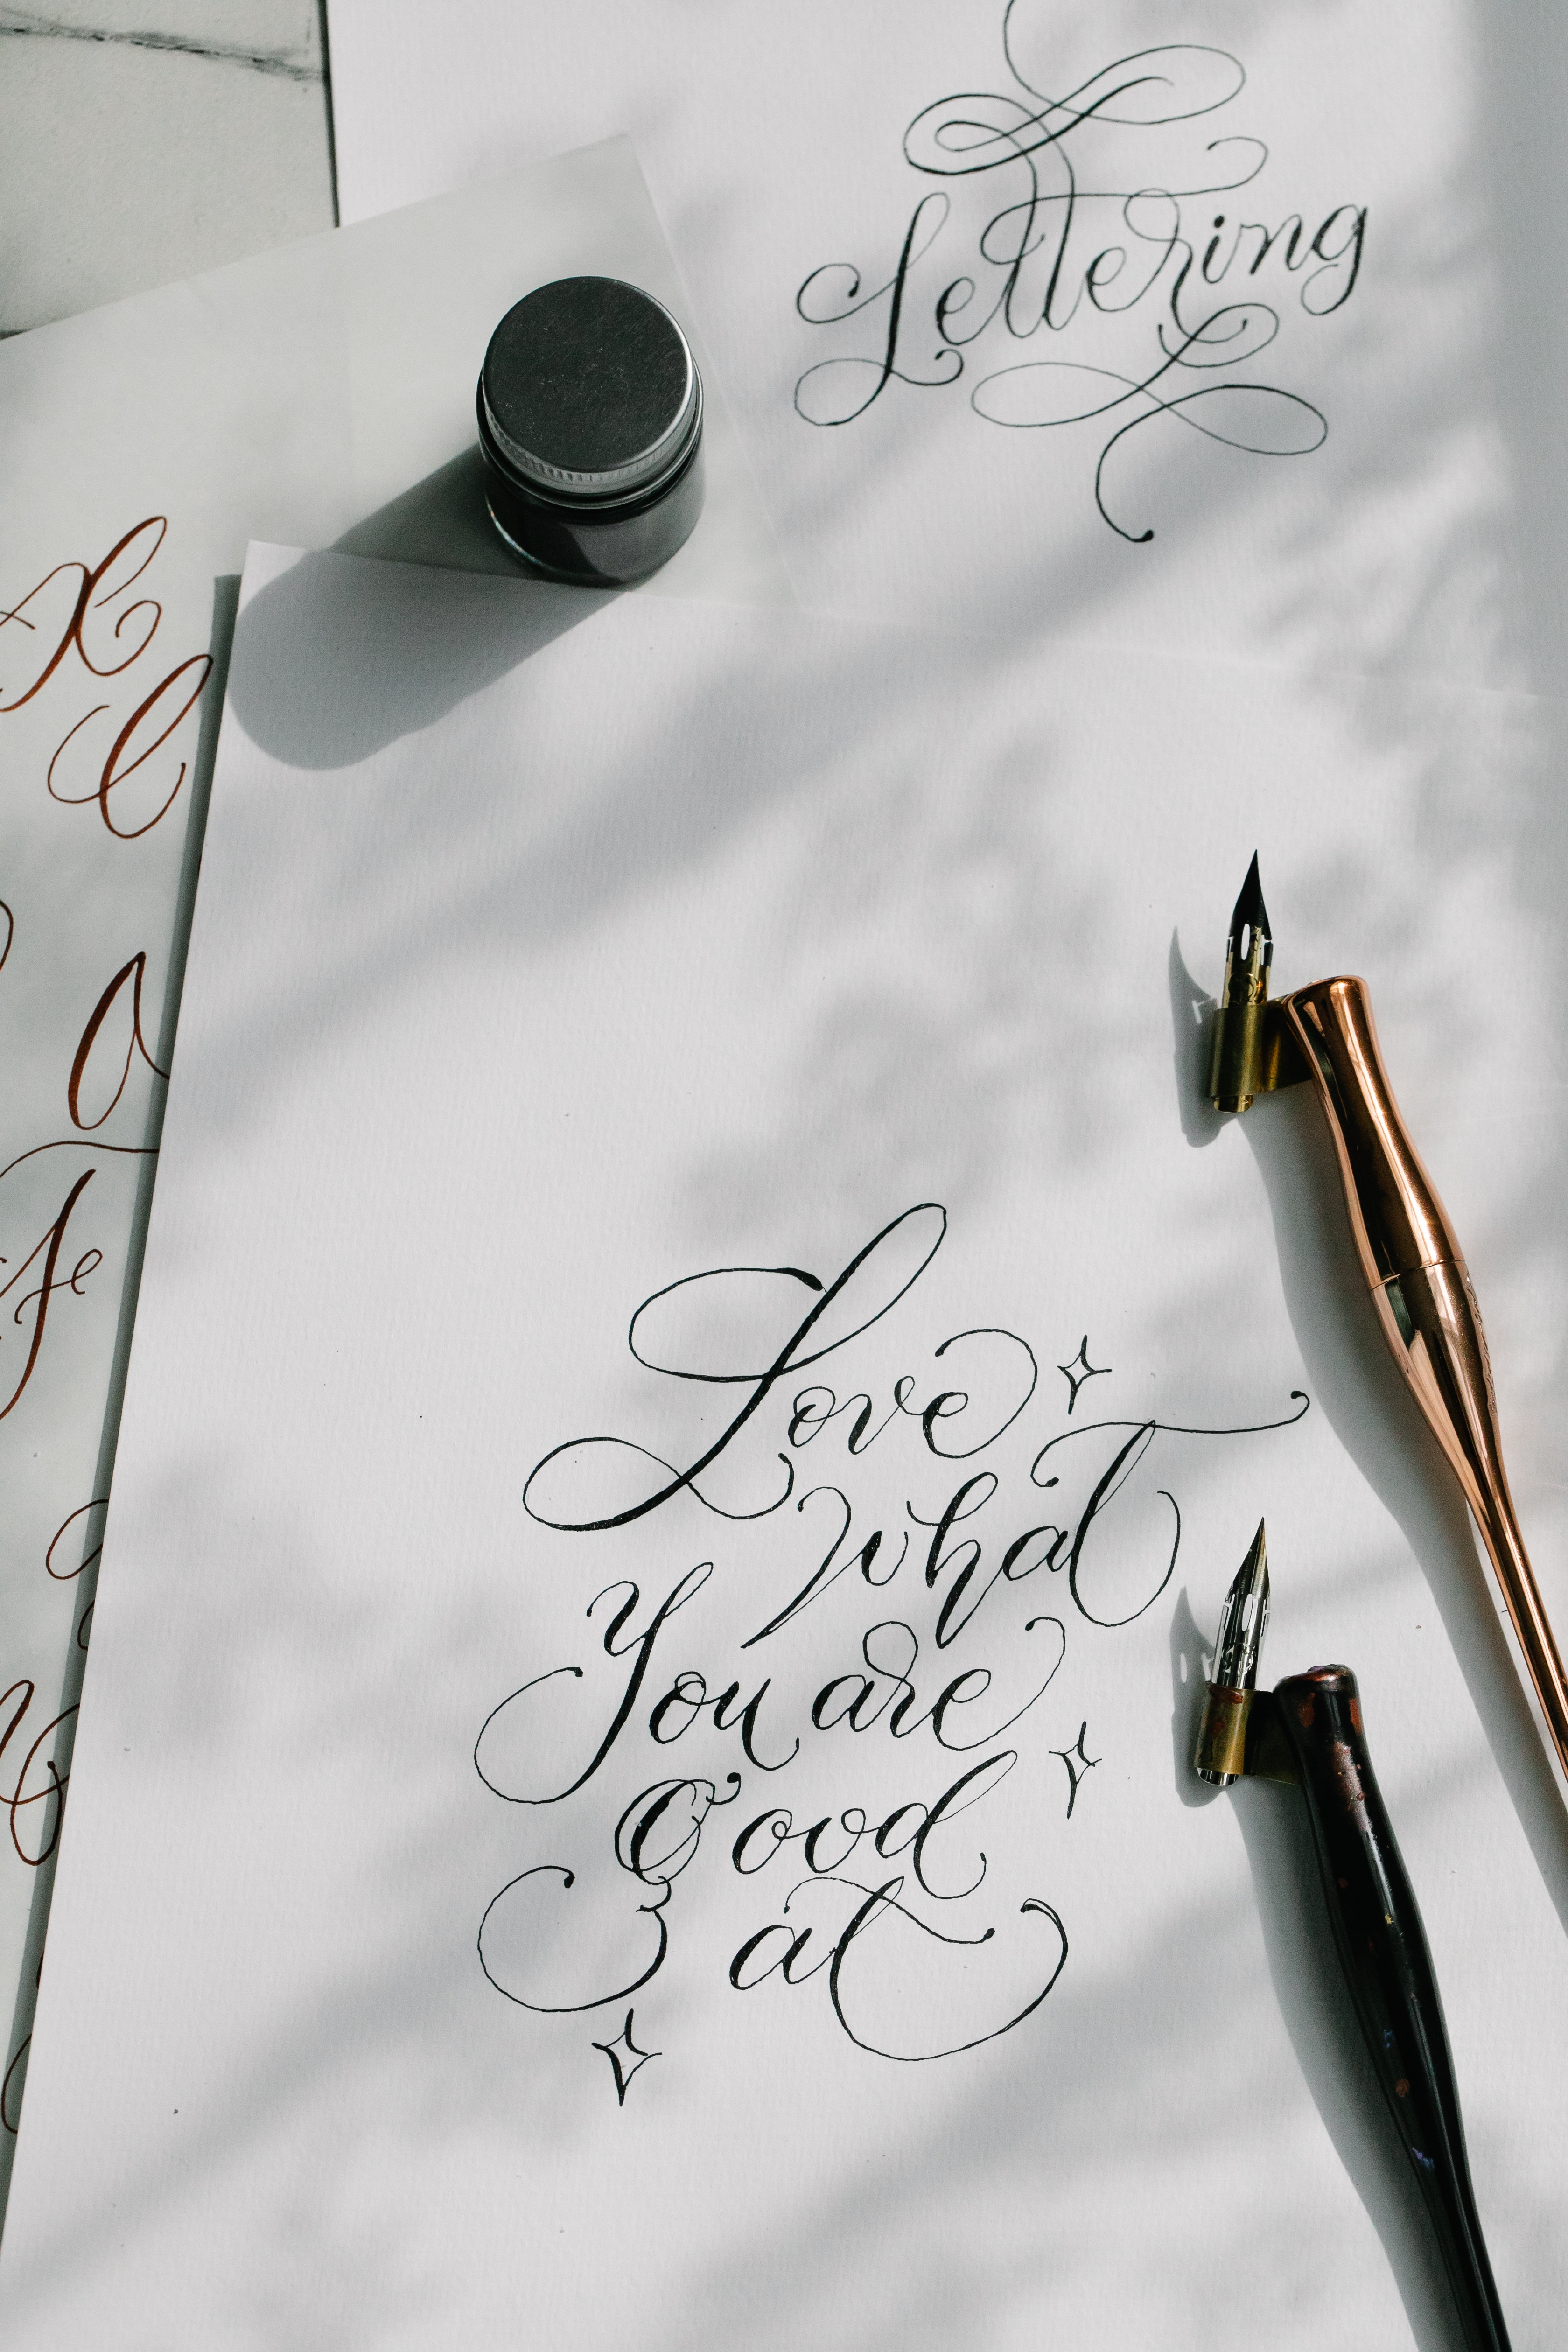 Lettering
Love
what
You are
Good
at